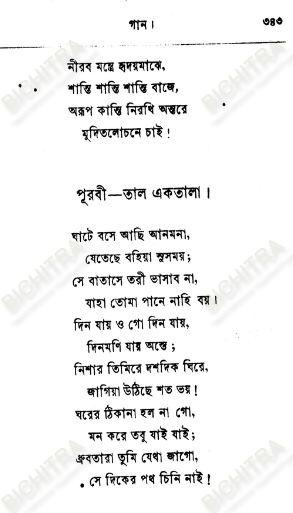 গান।
৩৪৩
নীরব মন্ত্রে হৃদয়মাঝে,
শান্তি শান্তি শান্তি বাজে,
অরূপ কান্তি নিরখি অন্তরে
মুদিতলোচনে চাই!
পূরবী—তাল একতালা।
ঘাটে বসে আছি আনমনা,
যেতেছে বহিয়া সুসময়;
সে বাতাসে তরী ভাসাব না,
যাহা তোমা পানে নাহি বয়।
দিন যায় ও গো দিন যায়,
দিনমণি যায় অস্তে;
নিশার তিমিরে দশদিক ঘিরে,
জাগিয়া উঠিছে শত ভয়!
ঘরের ঠিকানা হল না গো,
মন করে তবু যাই যাই;
ধ্রুবতারা তুমি যেথা জাগো,
সে দিকের পথ চিনি নাই!
BICHITRA